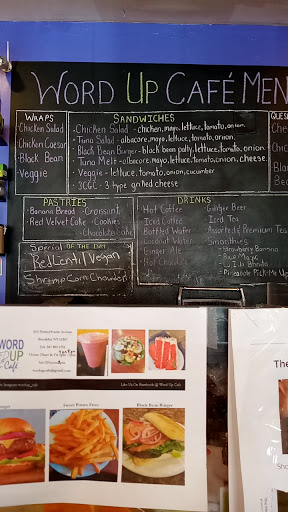 WORD UP CAFÉ MEN
WRAPS
Chicken Salad
Chicken Caesar
Black Bean
Veggie
SANDWICHES
- Chicken Salad - chicken, mayo, lettuce, tomato, onion
- Tuna Salad - albacore, mayo, lettuce, tomato, onion.
- Black Bean Burger - black bean patty, lettuce, tomato, onion
- Tuna Melt - albacore, mayo, lettuce, tomato, onion, cheese
- Veggie - lettuce, tomato, onion, cucumber
- 3CGC - 3 type grilled cheese
QUES
PASTRIES
- Banana Bread - Croissant
- Red Velvet Cake - Cookies
- Chocolate Cake
Special OF THE DAY
Red Lentil Vegan
Shrimp Corn Chowder
DRINKS
Hot Coffee
Iced Coffee
Bottled Water
Coconut Water
Ginger Ale
Hot Chocolate
Ginger Beer
Iced Tea
Assorted Premium Teas
Smoothies
- Strawberry Banana
- Blue Magic
- Pineapple Pick-Me Up
WORD
UP
Café
Like Us On Facebook @ Word Up Café
Sweet Potato Fries
Black Bean Burger
The